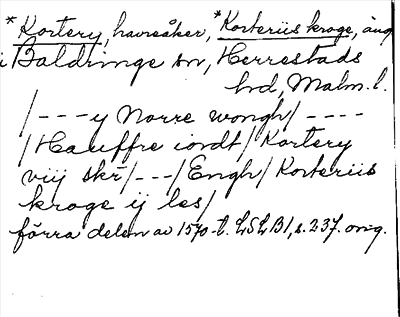 *Kortery, havreåker, *Korteriis kroge, äng
i Baldringe sn, Herrestads
hd, Malm. l.
/---y Norre wongh/----
/Hauffre iordt/ Kortery
viij skr̄/---/Engh/ Korteriis
kroge ij les/
förra delen av 1570-t. LSLB1, s. 237. orig.